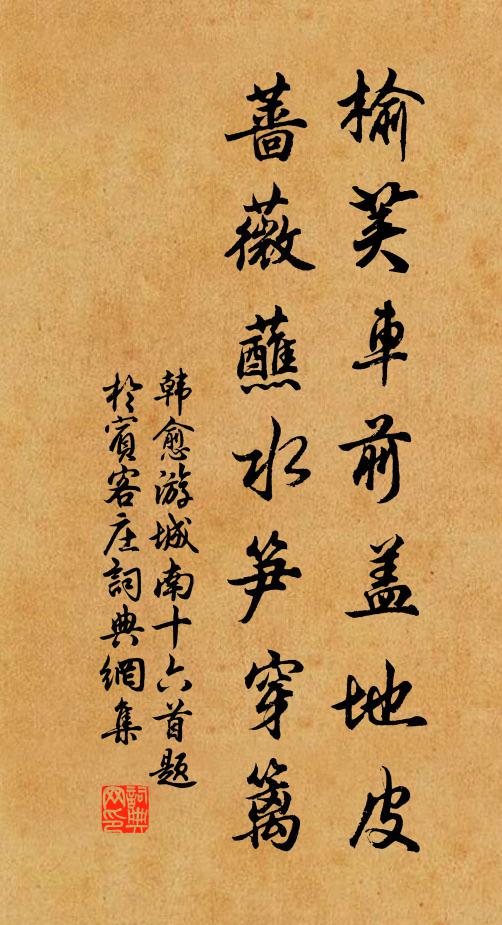 榆荚車前盖地皮
薔薇蘸水笋穿篱
韩愈游城南十六首题
於賓客庄詞典網集
詞典
网印